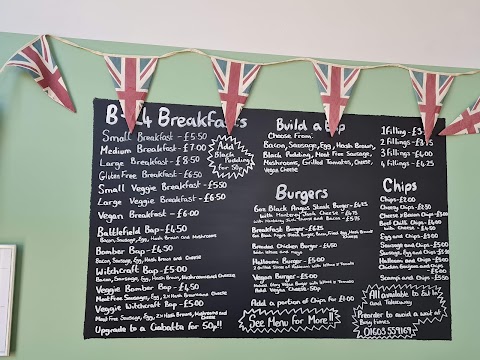 Breakfasts
Small Breakfast - £5.50
Medium Breakfast - £7.00
Large Breakfast - £8.50
Gluten Free Breakfast - £6.50
Small Veggie Breakfast - £5.50
Large Veggie Breakfast - £6.50
Vegan Breakfast - £6.00
Add
Black
Pudding
for 50p
Battlefield Bap - £4.50
Bacon, Sausage, Egg, Hash Brown and Mushrooms
Bomber Bap - £4.50
Bacon, Sausage, Egg, Hash Brown and Cheese
Witchcraft Bap - £5.00
Bacon, Sausage, Egg, Hash Brown, Mushrooms and Cheese
Veggie Bomber Bap - £4.50
Meat Free Sausage, Egg, 2x Hash Brown and Cheese
Veggie Witchcraft Bap - £5.00
Meat Free Sausage, Egg, 2x Hash Brown, Mushroom and Cheese
Upgrade to a Ciabatta for 50p!!
Build a Bap
Choose From:
Bacon, Sausage, Egg, Hash Brown,
Black Pudding, Meat Free Sausage,
Mushrooms, Grilled Tomatoes, Cheese,
Vegan Cheese
1 Filling
2 Fillings
3 Fillings - £4.00
4 Fillings - £4.25
Burgers
6oz Black Angus Steak Burger - £4.25
with Monterey Jack Cheese - £4.75
Breakfast Burger - £6.25
Breaded Chicken Burger - £4.50
Halloumi Burger - £5.00
Vegan Burger - £5.00
Add Vegan Cheese 50p
Add a portion of Chips for £1.00
See Menu for More!!
Chips
Chips - £2.00
Cheesy Chips
Cheese & Bacon Chips
Beef Chilli Chips
with Cheese - £4.50
Sausage and Chips
Sausage, Egg and Chips
Halloumi and Chips
Chicken Goujons and
Chips - £5.00
Scampi and Chips - £5.50
All available to Eat In
and Takeaway
Preorder to avoid a wait at
Busy times
01603 559169